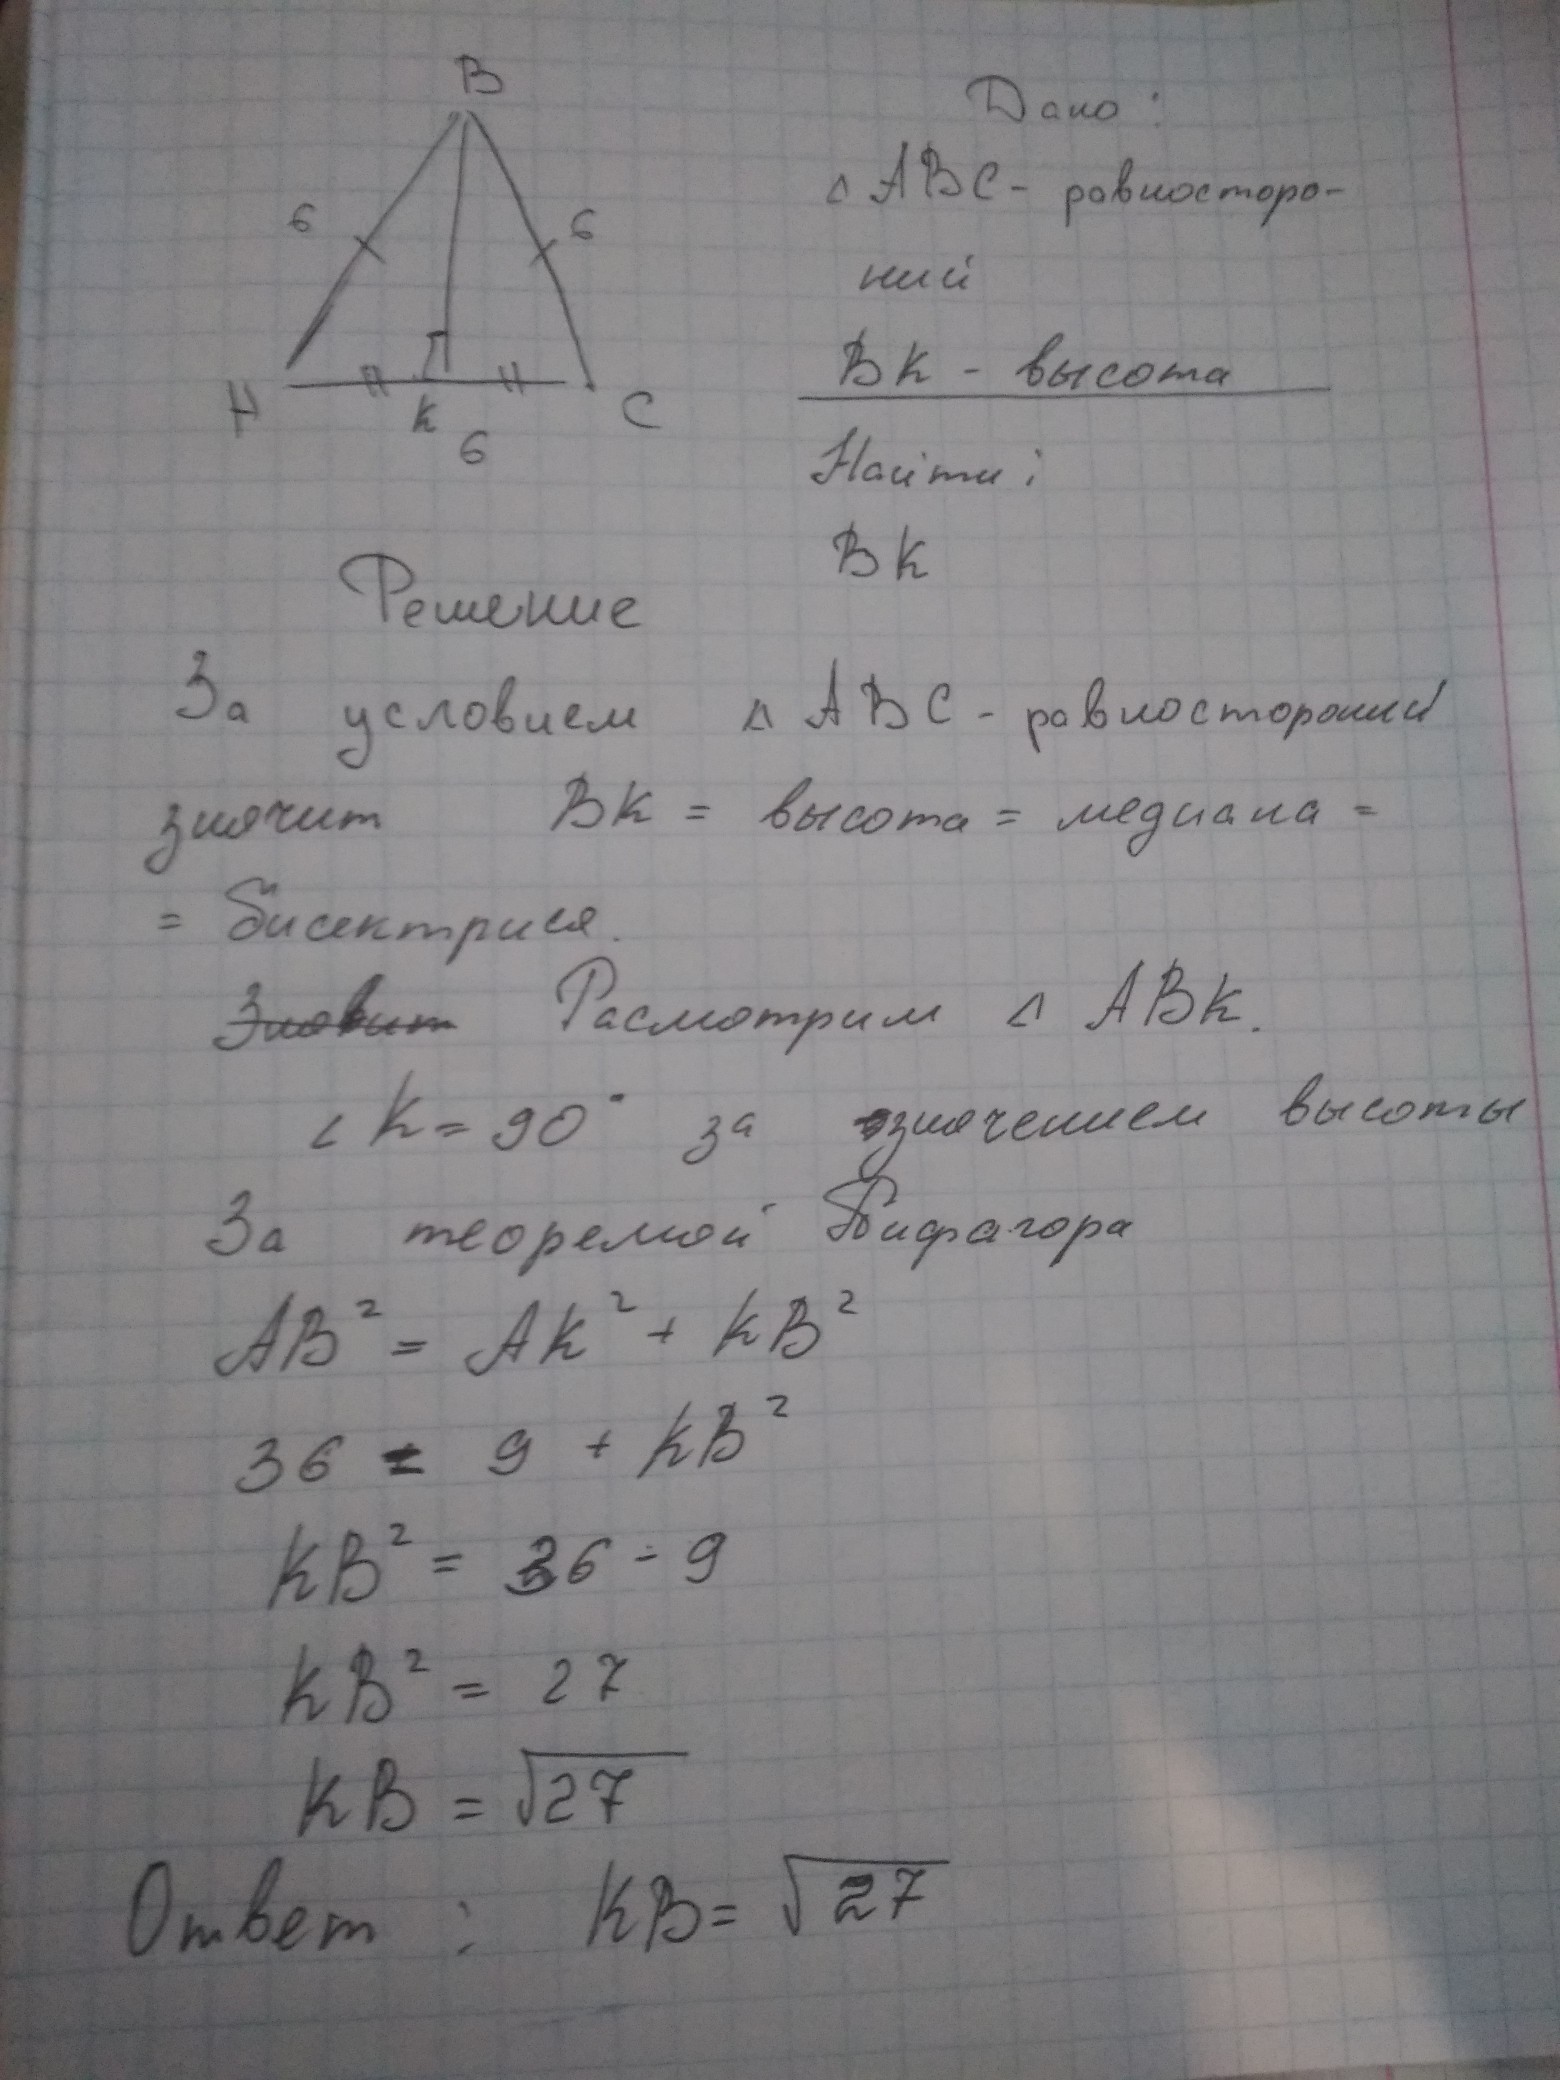 B
6 6
A K C
6
Дано:
△ ABC - равносторо-
ний
BK - высота
Найти:
BK
Решение
За условием △ ABC - равностороний
значит BK = высота = медиана =
= бисектриса.
Расмотрим △ ABK.
∠ K = 90° за значением высоты
За теоремой Пифагора
AB² = AK² + KB²
36 = 9 + KB²
KB² = 36 - 9
KB² = 27
KB = √27
Ответ: KB = √27